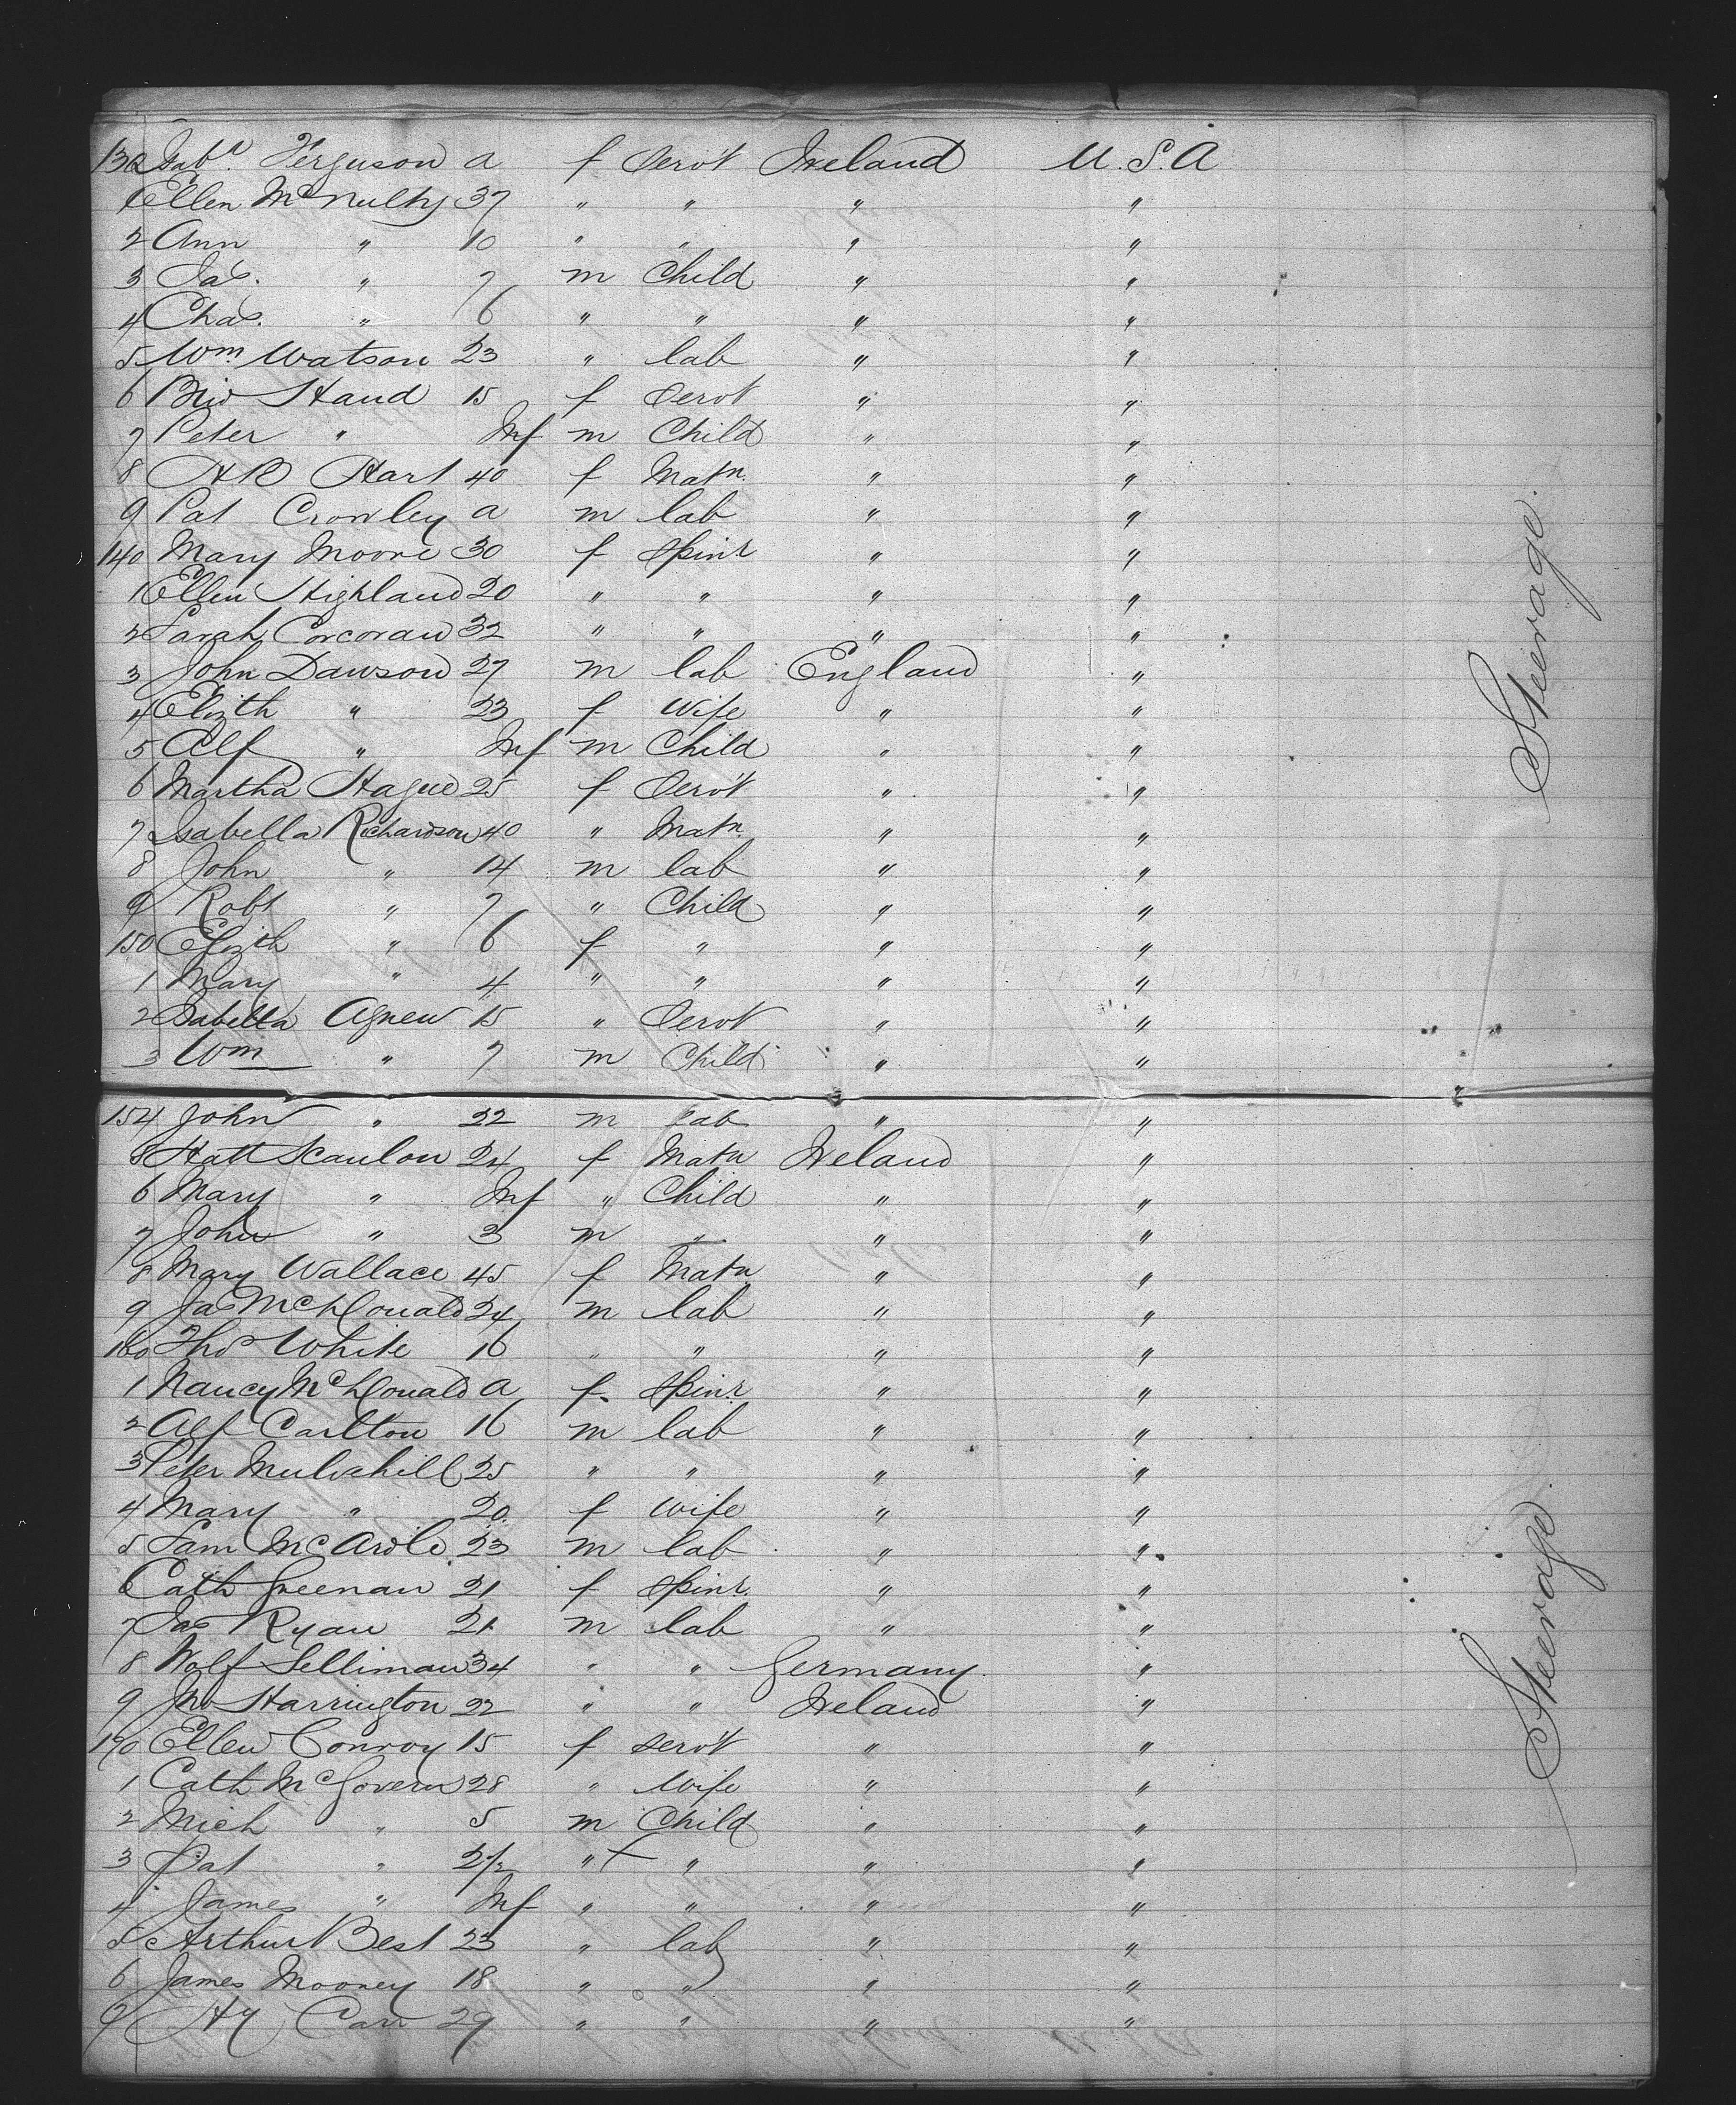 130 Isab.a Ferguson a f Servt Ireland U.S.A
1 Ellen McNulty 37 " " " "
2 Ann " 10 " " " "
3 Jas. " 7 m Child " "
4 Chas. " 6 " " " "
5 Wm Watson 23 " lab " "
6 Brid Hand 15 f Servt " "
7 Peter " Inf m Child " "
8 Hart 40 f Matn. " "
9 Pat Crowley a m lab " "
140 Mary Moore 30 f Spinr " "
1 Ellen Highland 20 " " " "
2 Sarah Corcoran 32 " " " "
3 John Dawson 27 m lab England "
4 Elizth " 23 f Wife " "
5 Alf " Inf m Child " "
6 Martha Hague 25 f Servt " "
7 Isabella Richardson 40 " Matn. " "
8 John " 14 m lab " "
9 Robt " 7 " Child " "
150 Elizth " 6 f " " "
1 Mary " 4 " " " "
2 Isabella Agnew 15 " Servt " "
3 Wm " 7 m Child " "
154 John " 22 m lab " "
5 Hatt Scanlon 24 f Matn Ireland "
6 Mary " Inf " Child " "
7 John " 3 m " " "
8 Mary Wallace 45 f Matn " "
9 Jas McDonald 24 m lab " "
160 Thos White 16 " " " "
1 Nancy McDonald a f. Spinr " "
2 Alf Carlton 16 m lab " "
3 Peter Mulvahill 25 " " " "
4 Mary " 20 f Wife " "
5 Sam McArdle 23 m lab " "
6 Cath Greenan 21 f Spinr. " "
7 Jas Ryan 21 m lab " "
8 Wolf Selliman 34 " " Germany. "
9 Jno Harrington 22 " " Ireland "
170 Ellen Conroy 15 f servt " "
1 Cath McGovern 28 " Wife " "
2 Mich " 5 m Child " "
3 Pat " 2/2 " " " "
4 James " Inf " " " "
5 Arthur Best 23 " lab " "
6 James Mooney 18 " " " "
7 Hy Carr 29 " " " "
Steerage.
Steerage.